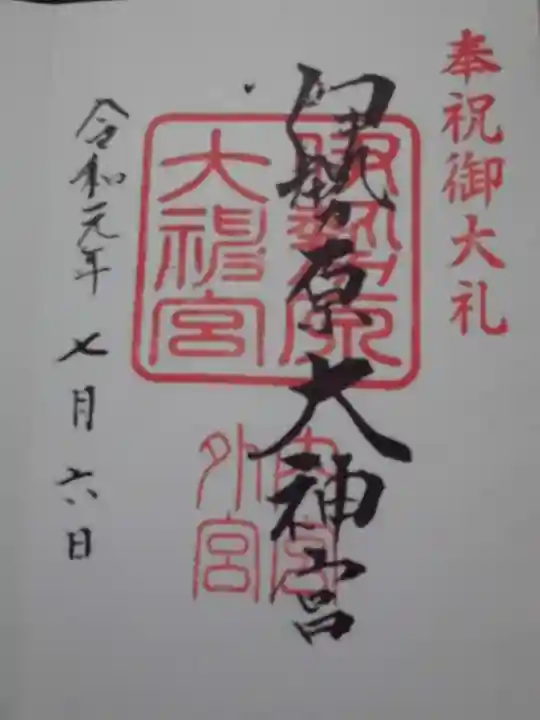 奉祝御大礼
伊勢原大神宮
伊勢原
大神宮
内宮
外宮
令和元年七月六日